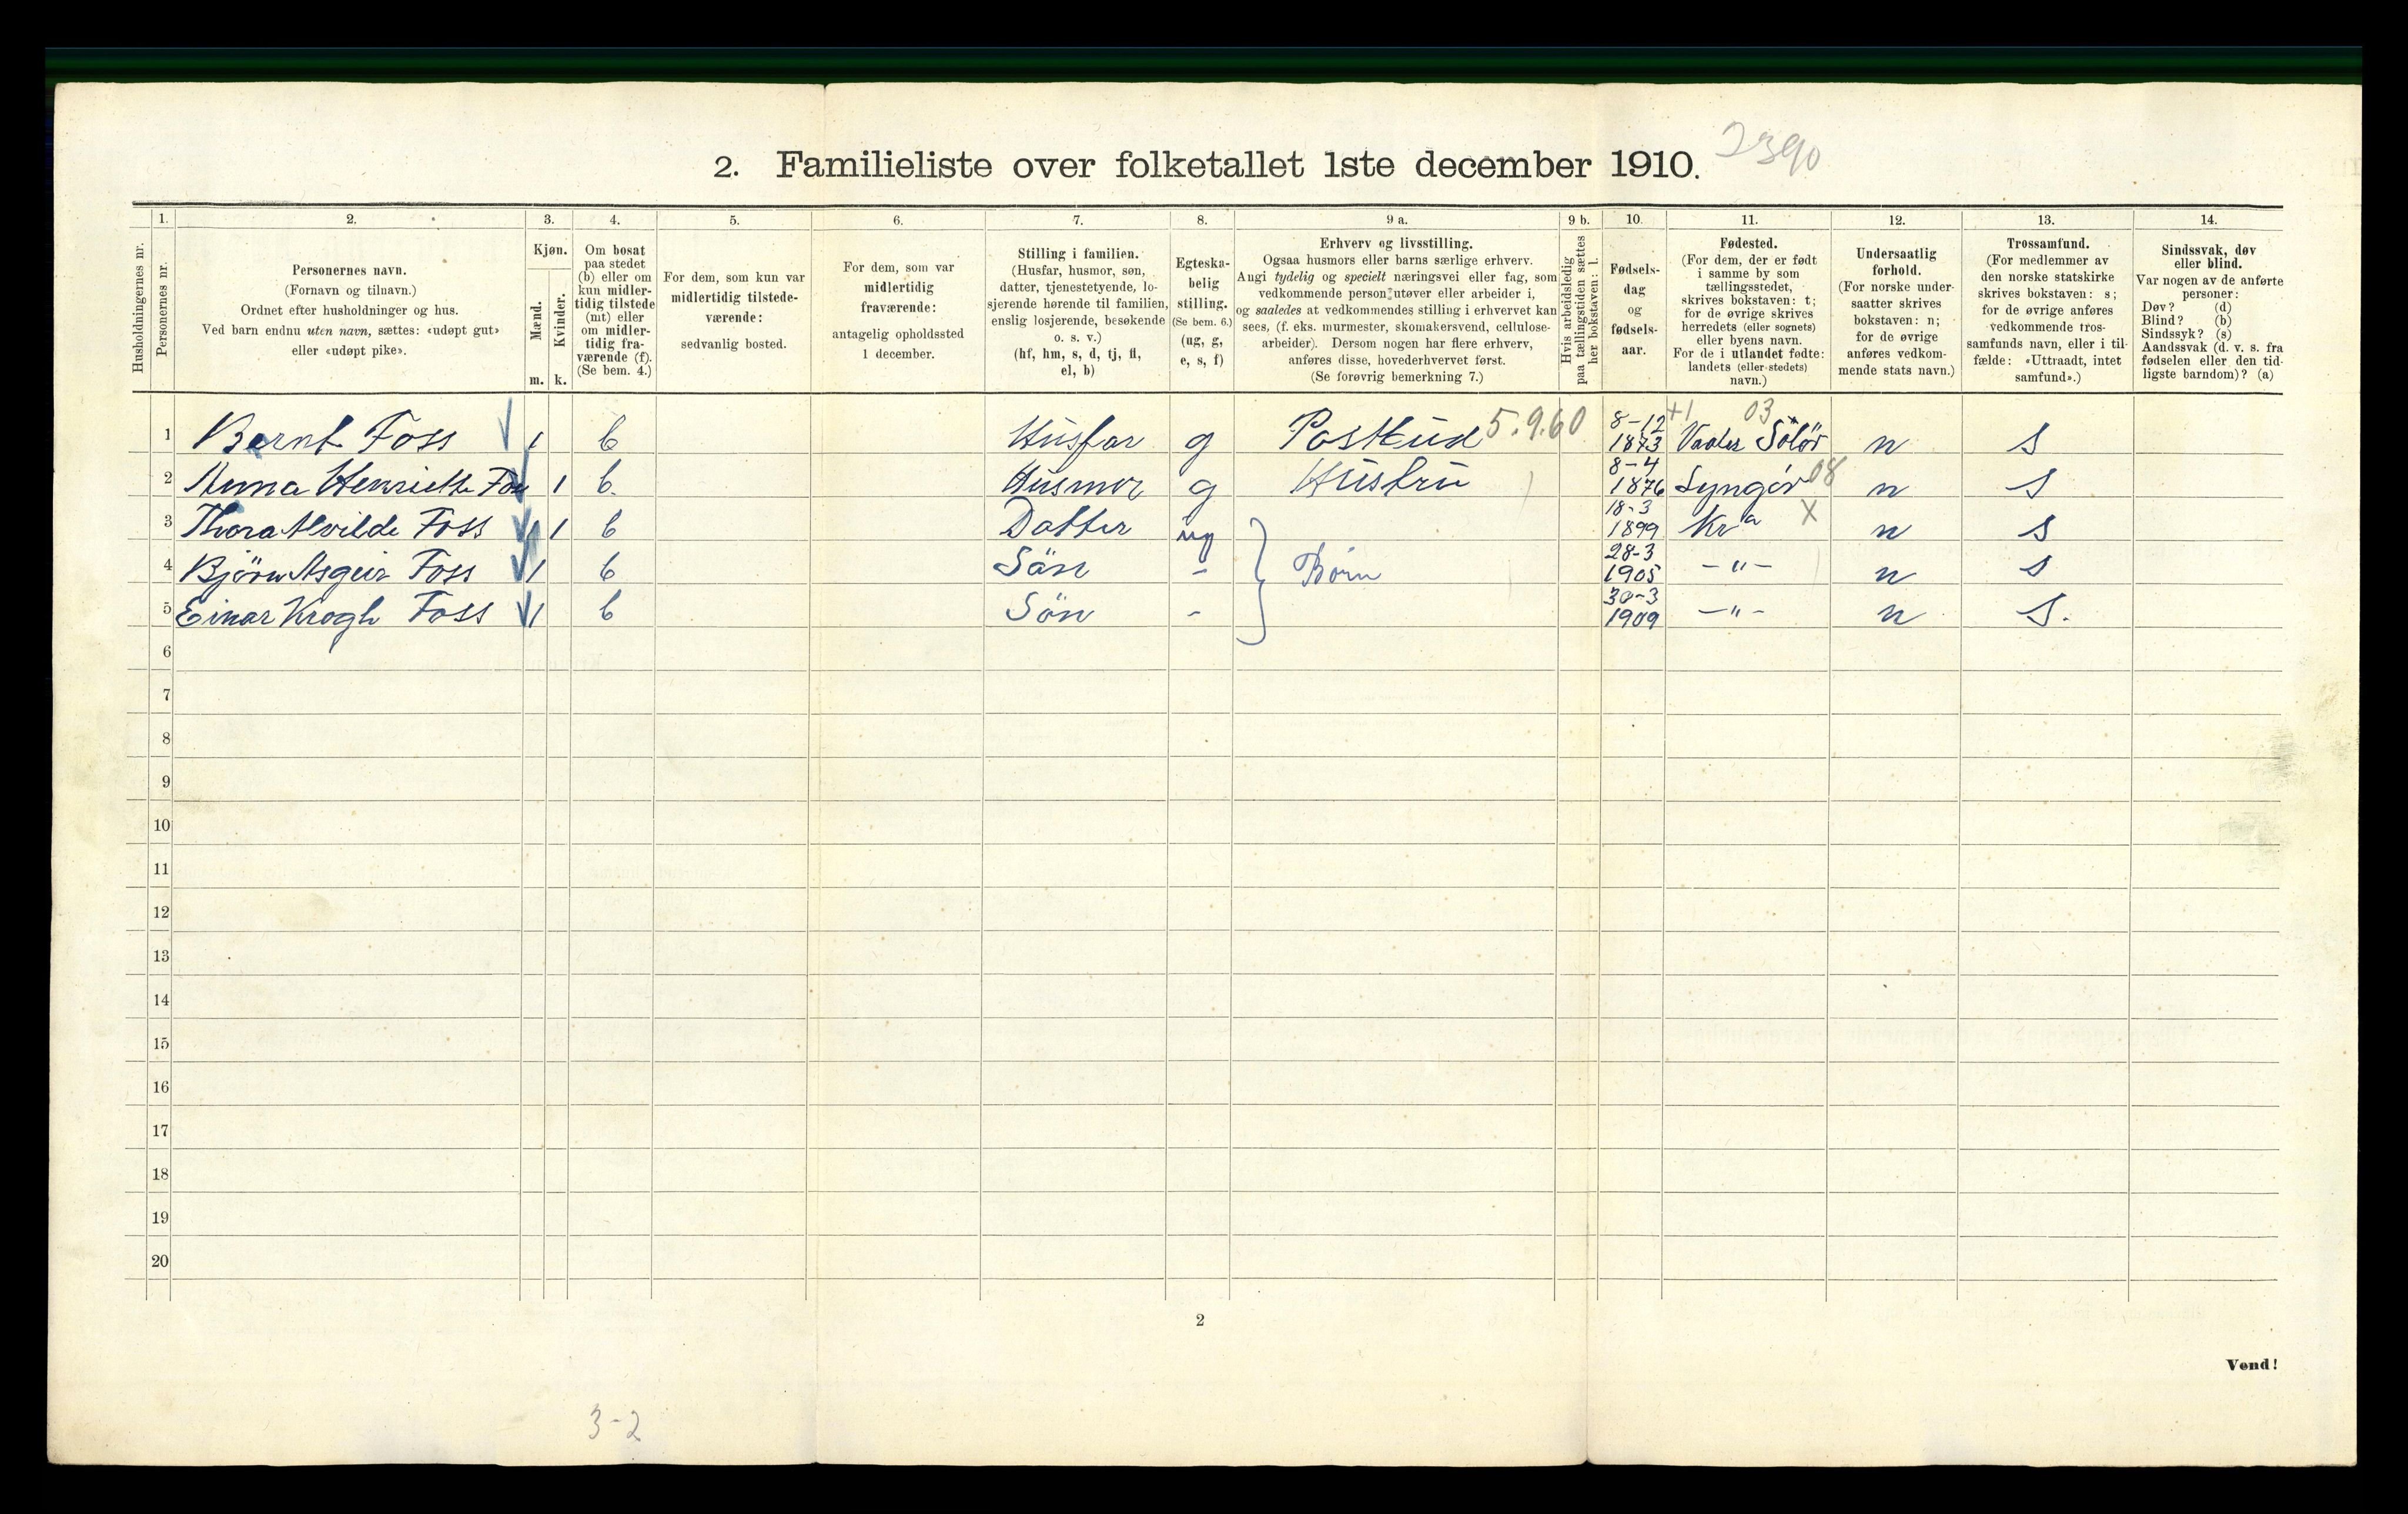 2390
2. Familieliste over folketallet 1ste december 1910.
Husholdningernes nr.
1.
Personernes nr.
2.
Personernes navn.
(Fornavn og tilnavn.)
Ordnet efter husholdninger og hus.
Ved barn endnu uten navn, sættes: «udøpt gut»
eller «udøpt pike».
3.
Kjøn.
Mænd.
Kvinder.
m. k.
4.
Om bosat
paa stedet
(b) eller om
kun midler-
tidig tilstede
(mt) eller
om midler-
tidig fra-
værende (f).
(Se bem. 4.)
5.
For dem, som kun var
midlertidig tilstede-
værende:
sedvanlig bosted.
6.
For dem, som var
midlertidig
fraværende:
antagelig opholdssted
1 december.
7.
Stilling i familien.
(Husfar, husmor, søn,
datter, tjenestetyende, lo-
sjerende hørende til familien,
enslig losjerende, besøkende
o. s. v.)
(hf, hm, s, d, tj, fl,
el, b)
8.
Egteska-
belig
stilling.
(Se bem. 6.)
(ug, g,
e, s, f)
9 a.
Erhverv og livsstilling.
Ogsaa husmors eller barns særlige erhverv.
Angi tydelig og specielt næringsvei eller fag, som
vedkommende person utøver eller arbeider i,
og saaledes at vedkommendes stilling i erhvervet kan
sees, (f. eks. murmester, skomakersvend, cellulose-
arbeider). Dersom nogen har flere erhverv,
anføres disse, hovederhvervet først.
(Se forøvrig bemerkning 7.)
9 b.
Hvis arbeidsledig
paa tællingstiden sættes
her bokstaven: l.
10.
Fødsels-
dag
og
fødsels-
aar.
11.
Fødested.
(For dem, der er født
i samme by som
tællingsstedet,
skrives bokstaven: t;
for de øvrige skrives
herredets (eller sognets)
eller byens navn.
For de i utlandet fødte:
landets (eller stedets)
navn.)
12.
Undersaatlig
forhold.
(For norske under-
saatter skrives
bokstaven: n;
for de øvrige
anføres vedkom-
mende stats navn.)
13.
Trossamfund.
(For medlemmer av
den norske statskirke
skrives bokstaven: s;
for de øvrige anføres
vedkommende tros-
samfunds navn, eller i til-
fælde: «Uttraadt, intet
samfund».)
14.
Sindssvak, døv
eller blind.
Var nogen av de anførte
personer:
Døv? (d)
Blind? (b)
Sindssyk? (s)
Aandssvak (d. v. s. fra
fødselen eller den tid-
ligste barndom)? (a)
1 Bernt Foss 1 b Husfar g Postbud 5.9.60 8-12 1873 Vaaler Solör 03 n s
2 Anna Henriette Foss 1 b. Husmor g Hustru 8-4 1876 Lyngör 08 n s
3 Thora Alvilde Foss 1 b Datter ug 18-3 1899 Kr a X n s
4 Björn Asgeir Foss 1 b Sön - Börn 28-3 1905 - " - n s
5 Einar Krogh Foss 1 b Sön - 30-3 1909 - " - n s.
6
7
8
9
10
11
12
13
14
15
16
17
18
19
20
2
Vend!
3-2